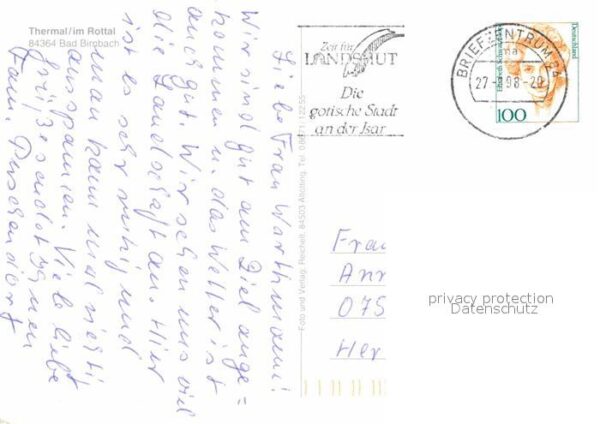 Thermal/im Rottal
84364 Bad Birnbach
Liebe Frau Warthmann!
Wir sind gut am Ziel ange=
kommen u. das Wetter ist
auch gut. Wir sehen uns viel
die Landschaft an. Hier
ist es sehr ruhig und
man kann mal richtig
ausspannen. Viele liebe
Grüße sendet Ihnen
Fam.
Foto und Verlag: Reichelt, 84503 Altötting, Tel.
Zeit für
LANDSHUT
Die
gotische Stadt
an der Isar
BRIEFZENTRUM 84
ma
27-
98-20
Deutschland
100
Frau
Ann
075
Her
privacy protection
Datenschutz